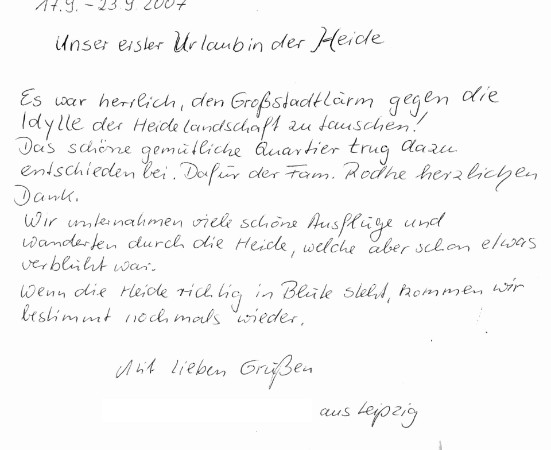 17.9. - 23.9.2007
Unser erster Urlaub in der Heide
Es war herrlich, den Großstadtlärm gegen die
Idylle der Heidelandschaft zu tauschen!
Das schöne gemütliche Quartier trug dazu
entschieden bei. Dafür der Fam. Rodhe herzlichen
Dank.
Wir unternahmen viele schöne Ausflüge und
wanderten durch die Heide, welche aber schon etwas
verblüht war.
Wenn die Heide richtig in Blüte steht, kommen wir
bestimmt nochmals wieder.
Mit lieben Grüßen
aus Leipzig